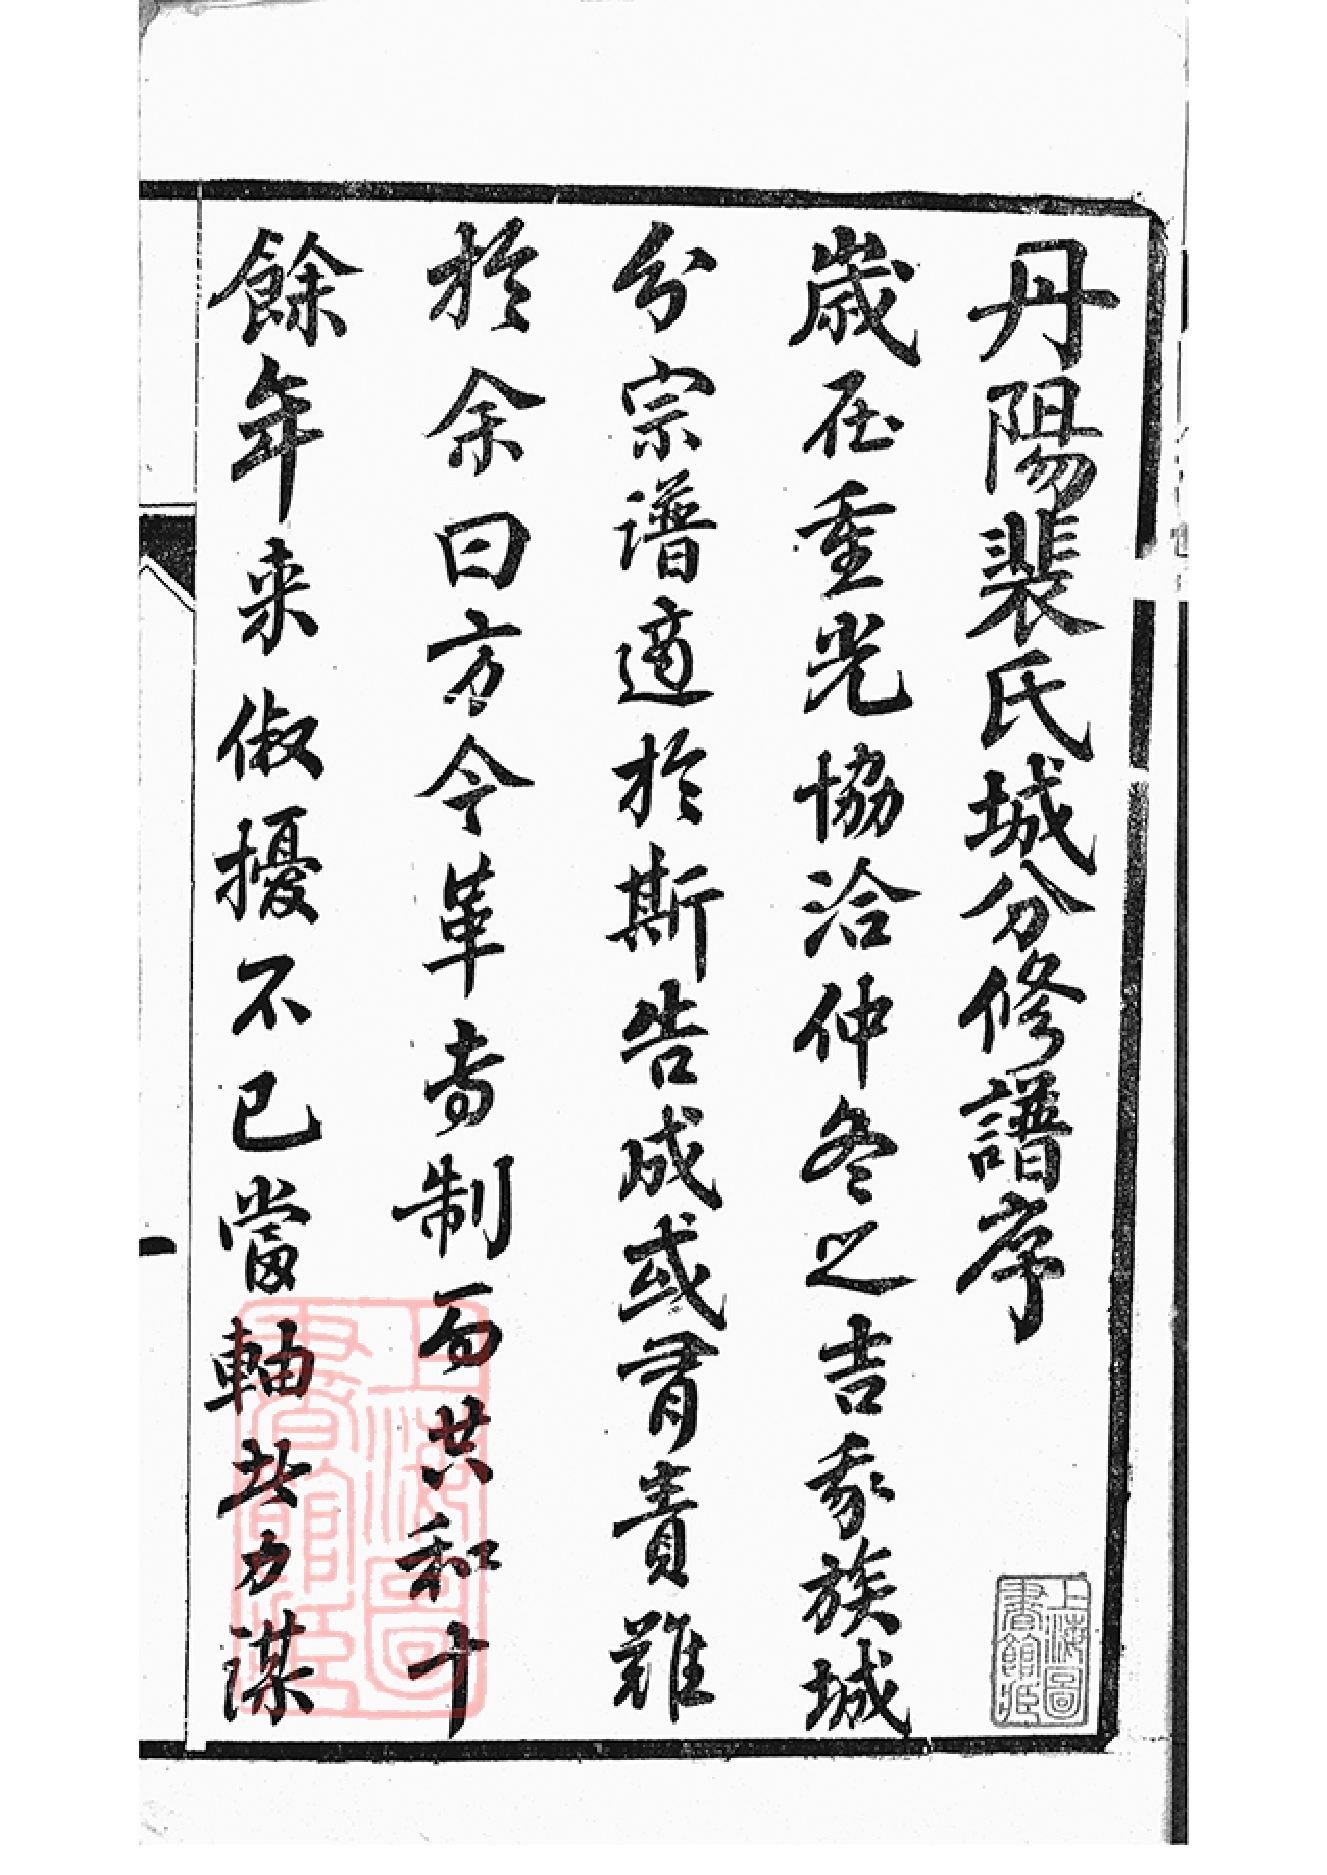 丹陽裴氏城分修譜序
歲在重光協洽仲冬之吉我族城
分宗譜適於斯告成或有責難
於余曰方今革者制而共和十
餘年来俶擾不已當軸者方謀
上海圖書館藏
上海圖書館藏
一